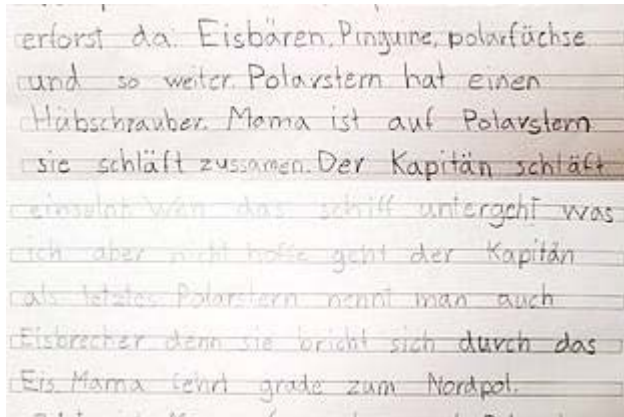 erforst da: Eisbären, Pinguine, polarfüchse
und so weiter. Polarstern hat einen
Hübschrauber. Mama ist auf Polarstern
sie schläft zussamen. Der Kapitän schläft
einseln Wen das schiff untergeht was
ich aber nicht hoffe geht der Kapitän
als letztes Polarstern nennt man auch
Eisbrecher denn sie bricht sich durch das
Eis. Mama fehrt grade zum Nordpol.